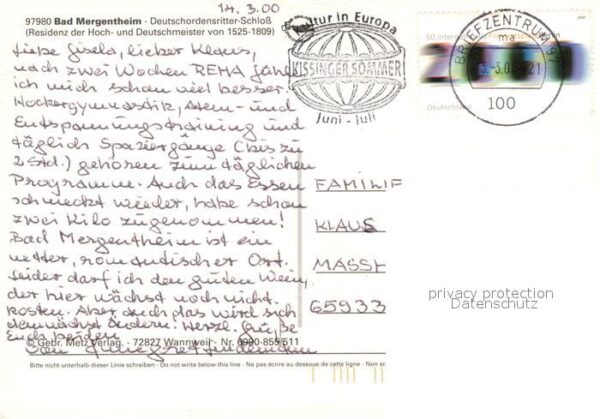 14.3.00
97980 Bad Mergentheim - Deutschordensritter-Schloß
(Residenz der Hoch- und Deutschmeister von 1525-1809)
Liebe Gisela, lieber Klaus,
nach zwei Wochen REHA fühle
ich mich schon viel besser.
Hockergymnastik, Atem- und
Entspannungstraining und
täglich Spaziergänge (bis zu
2 Std.) gehören zum täglichen
Programm. Auch das Essen
schmeckt wieder, habe schon
zwei Kilo zugenommen!
Bad Mergentheim ist ein
netter, romantischer Ort.
Leider darf ich den guten Wein,
der hier wächst noch nicht
kosten. Aber auch das wird sich
demnächst ändern. Herzl. Grüße
Euch beiden
von
© Gebr. Metz Verlag. - 72827 Wannweil - Nr. 6990-855/511
Bitte nicht unterhalb dieser Linie schreiben - Do not write below this line - Ne pas écrire au dessous de cette ligne - Non sc
Kultur in Europa
KISSINGER SOMMER
Juni - Juli
BRIEFZENTRUM 97
ma
-3.00-21
100
50
Deutschland
FAMILIE
KLAUS
MASSI
65933
privacy protection
Datenschutz